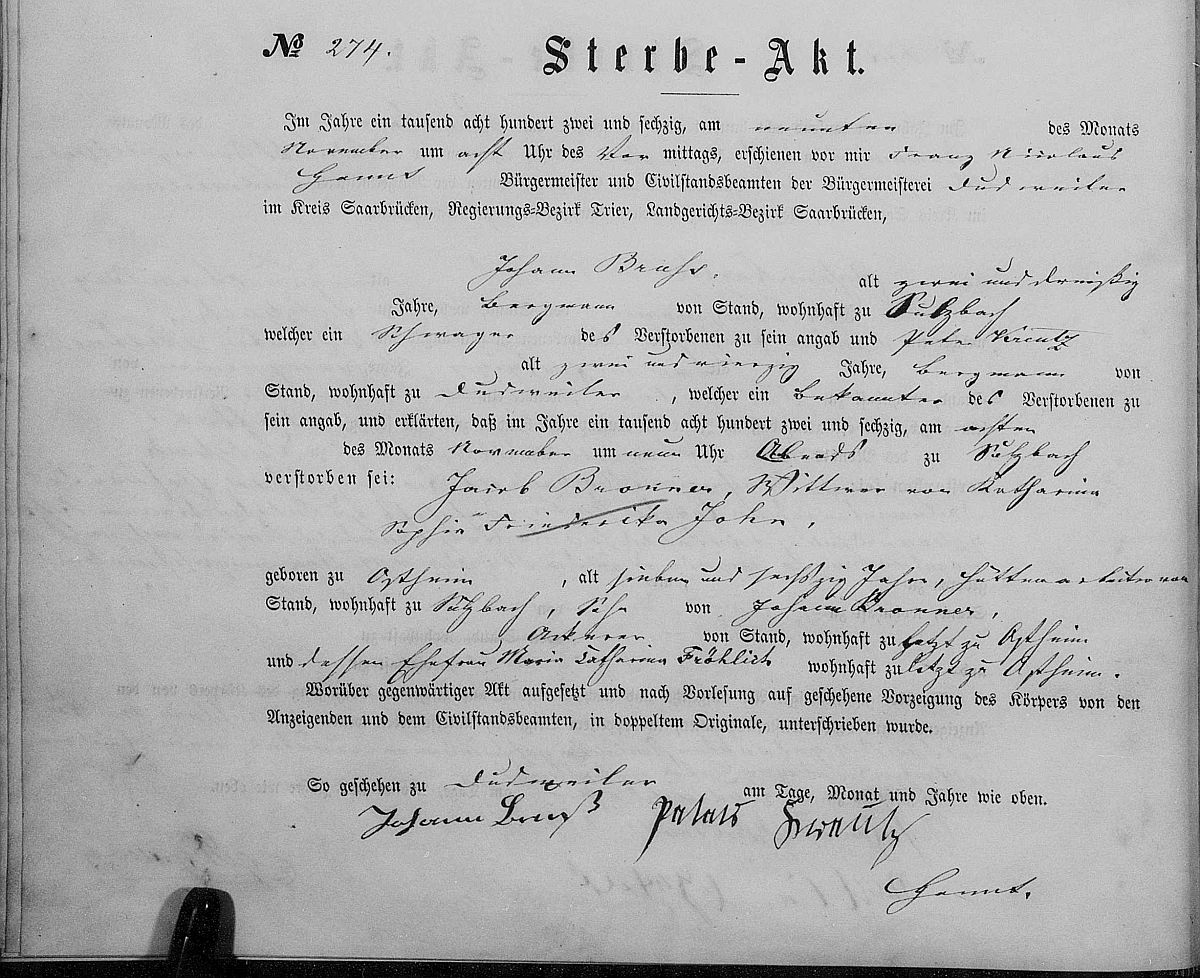 № 274. Sterbe-Akt.
Im Jahre ein tausend acht hundert zwei und sechzig, am neunten des Monats
November um acht Uhr des Vor mittags, erschienen vor mir Franz Nicolaus
Bürgermeister und Civilstandsbeamten der Bürgermeisterei Dudweiler
im Kreis Saarbrücken, Regierungs-Bezirk Trier, Landgerichts-Bezirk Saarbrücken,
Johann alt zwei und dreißig
Jahre, Bergmann von Stand, wohnhaft zu Sulzbach
welcher ein Schwager des Verstorbenen zu sein angab und Peter Kreutz
alt zwei und vierzig Jahre, Bergmann von
Stand, wohnhaft zu Dudweiler, welcher ein Bekannter des Verstorbenen zu
sein angab, und erklärten, daß im Jahre ein tausend acht hundert zwei und sechzig, am achten
des Monats November um neun Uhr Abends zu Sulzbach
verstorben sei: Jacob Bronner, Wittwer von Katharina
Sophia Friederika John,
geboren zu Ostheim, alt sieben und sechszig Jahre, Hüttenarbeiter von
Stand, wohnhaft zu Sulzbach, Sohn von Johann Bronner,
Ackerer von Stand, wohnhaft zu letzt zu Ostheim
und dessen Ehefrau Maria Catharina Fröhlich wohnhaft zu letzt zu Ostheim.
Worüber gegenwärtiger Akt aufgesetzt und nach Vorlesung auf geschehene Vorzeigung des Körpers von den
Anzeigenden und dem Civilstandsbeamten, in doppeltem Originale, unterschrieben wurde.
So geschehen zu Dudweiler am Tage, Monat und Jahre wie oben.
Johann